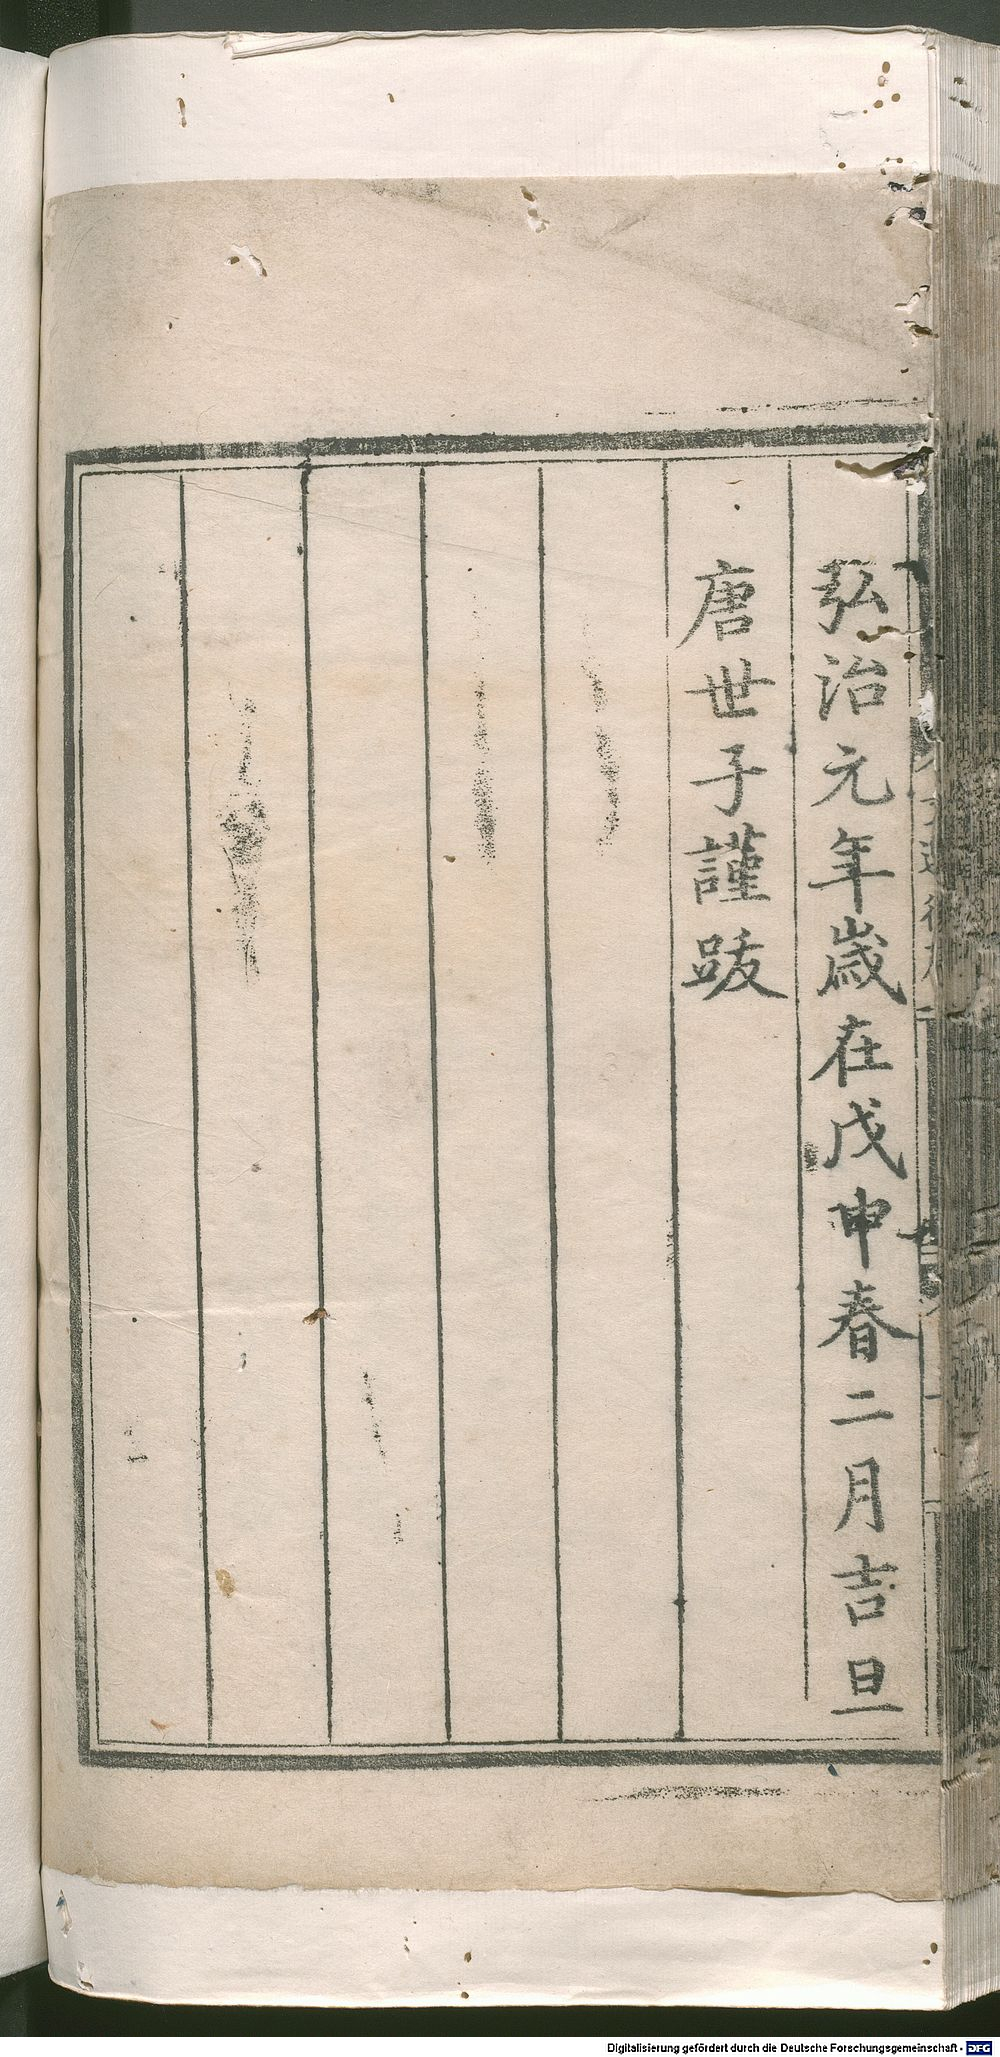 弘治元年歲在戊申春二月吉旦
唐世子謹跋
Digitalisierung gefördert durch die Deutsche Forschungsgemeinschaft - DFG